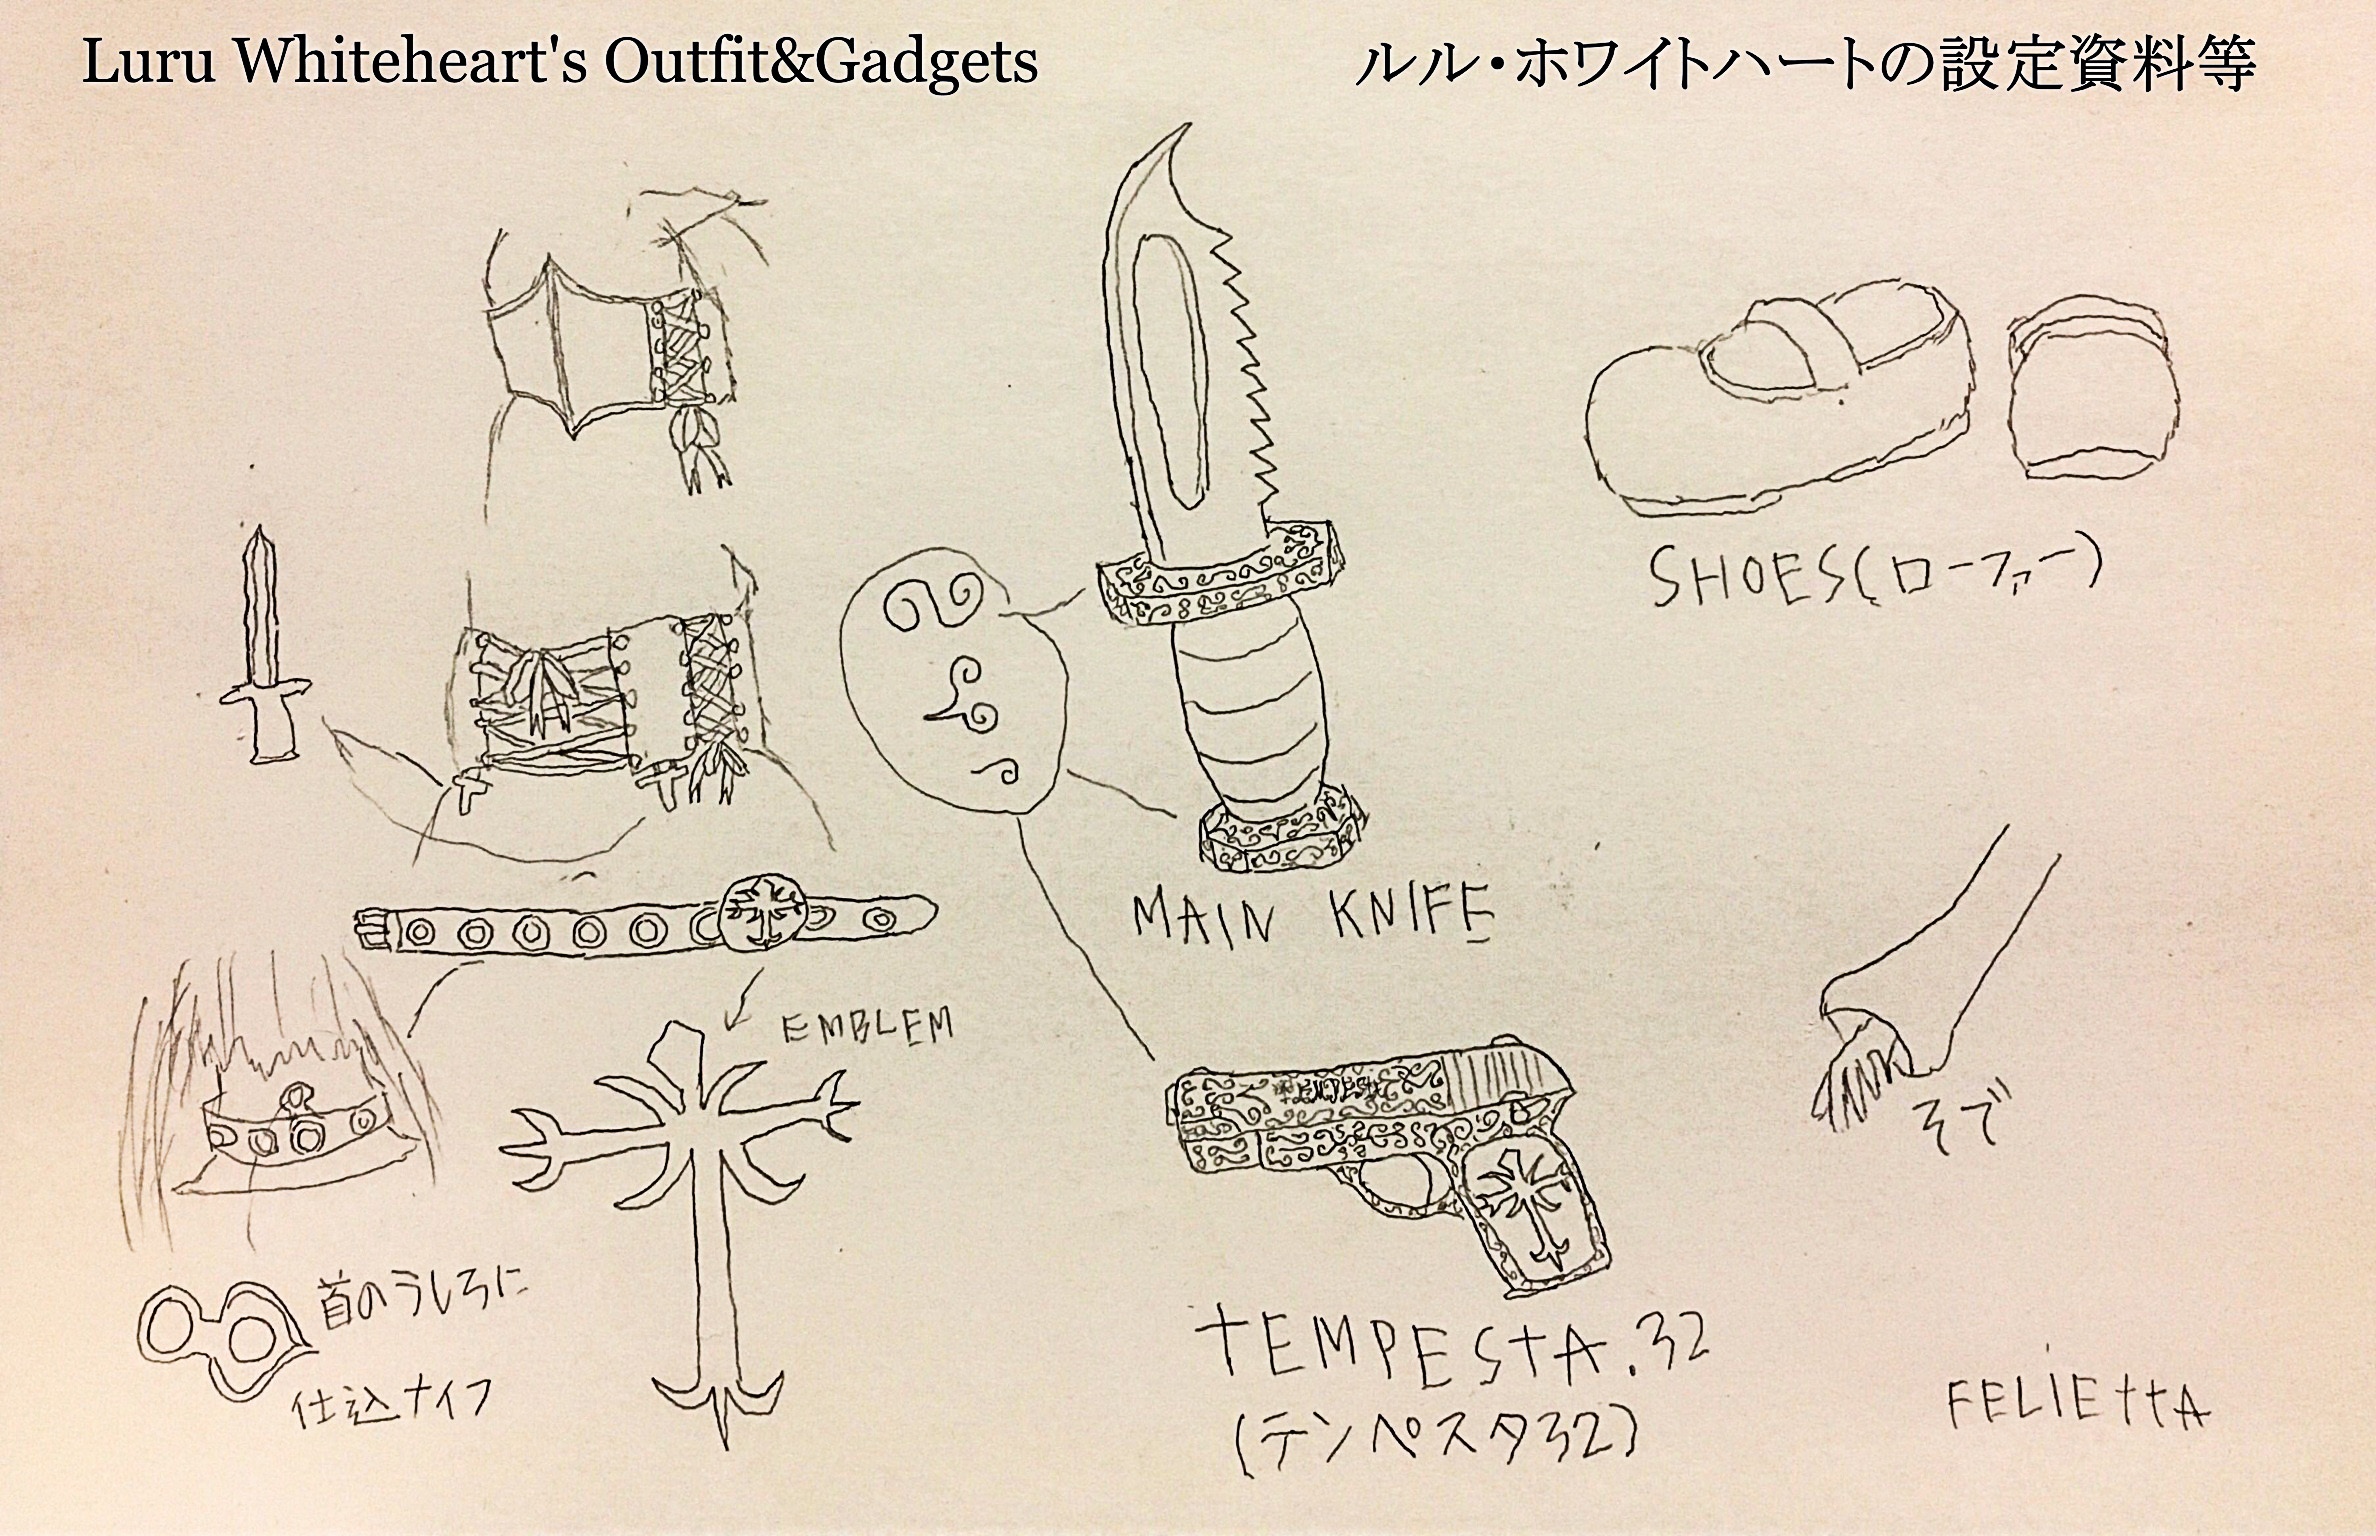 Luru Whiteheart's Outfit&Gadgets
ルル・ホワイトハートの設定資料等
SHOES(ローファー)
MAIN KNIFE
EMBLEM
TEMPESTA
そで
首のうしろに
仕込ナイフ
TEMPESTA.32
(テンペスタ32)
FELIETTA